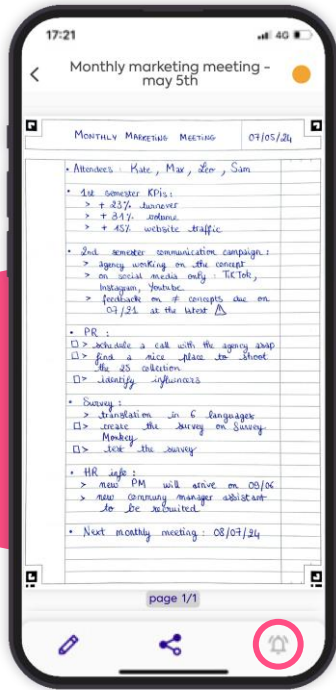 17:21 4G
Monthly marketing meeting -
may 5th
MONTHLY MARKETING MEETING 07/05/24
• Attendees : Kate, Max, Leo, Sam
• 1st semester KPIs :
> + 23% turnover
> + 31% volume
> + 45% website traffic
• 2nd semester communication campaign :
> agency working on the concept
> on social media only : TikTok,
Instagram, Youtube
> feedback on ≠ concepts due on
07/21 at the latest ⚠
• PR :
□> schedule a call with the agency asap
□> find a nice place to shoot
the 25 collection
□> identify influencers
• Survey :
> translation in 6 languages
□> create the survey on Survey
Monkey
□> test the survey
• HR info :
> new PM will arrive on 09/06
> new manager assistant
to be recruited
• Next monthly meeting : 08/07/24
page 1/1